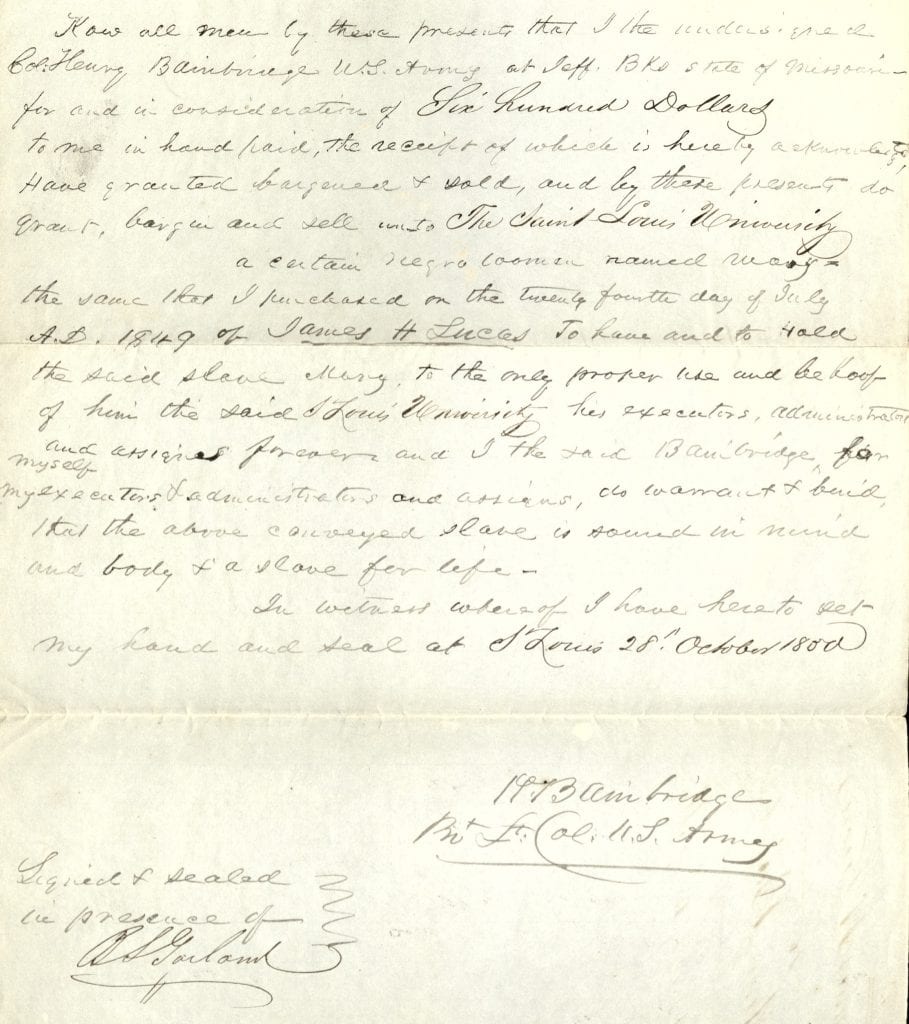 Know all men by these presents that I the undersigned
Col. Henry Bainbridge U.S. Army at Jeff. Bks state of Missouri
for and in consideration of Six hundred Dollars
to me in hand paid, the receipt of which is hereby acknowledged,
Have granted bargened & sold, and by these presents do
grant, bargin and sell unto The Saint Louis University
a certain negro woman named Mary
the same that I purchased on the twenty fourth day of July
A.D. 1849 of James H Lucas To have and to Hold
the said slave Mary, to the only proper use and behoof
of him the said St Louis University his executors, administrators
and assigns forever and I the said Bainbridge, for
myself
my executors & administrators and assigns, do warrant &
that the above conveyed slave is sound in mind
and body & a slave for life -
In witness whereof I have here to set
my hand and seal at St Louis 28th October 1850
H Bainbridge
Bvt Lt. Col. U.S. Army
Signed & sealed
in presence of
Garland